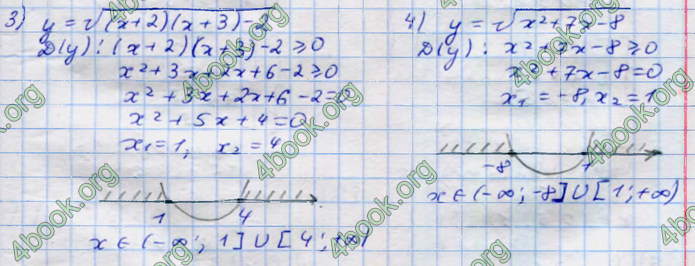 3) y = √(x+2)(x+3)-2
D(y): (x+2)(x+3)-2 ≥ 0
x² + 3x + 2x + 6 - 2 ≥ 0
x² + 3x + 2x + 6 - 2 = 0
x² + 5x + 4 = 0
x₁ = 1, x₂ = 4
1 4
x ∈ (-∞; 1] ∪ [4; +∞)
4) y = √x² + 7x - 8
D(y): x² + 7x - 8 ≥ 0
x² + 7x - 8 = 0
x₁ = -8, x₂ = 1
-8 1
x ∈ (-∞; -8] ∪ [1; +∞)
4book.org
4book.org
4book.org
4book.org
4book.org
4book.org